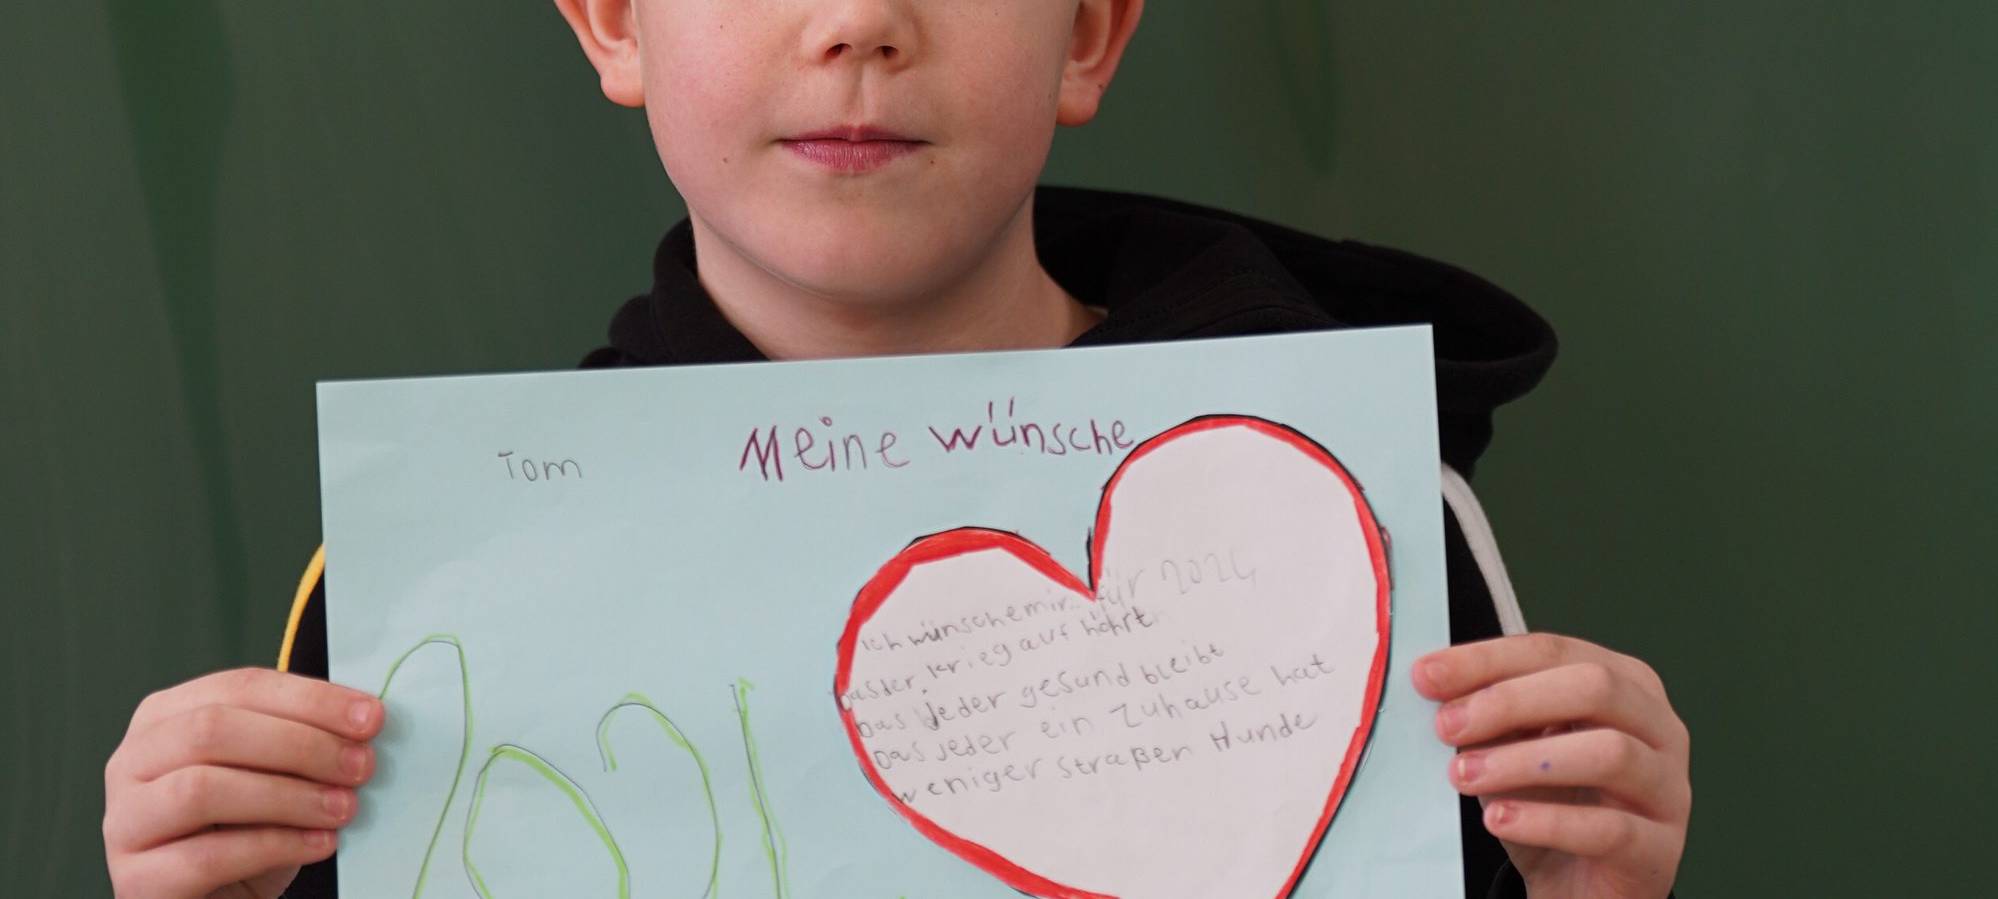 Tom
Meine wünsche
Ich wünsche mir für 2024
Das der krieg auf höhrt
Das jeder gesund bleibt
Das jeder ein Zuhause hat
weniger straßen Hunde
202